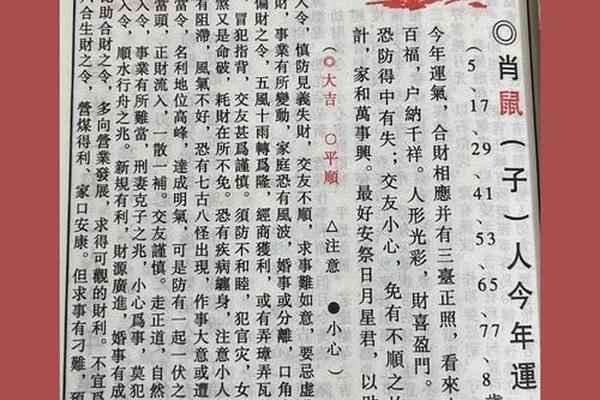 ◎肖鼠（子）人今年運
（5、17、29、41、53、65、77、8
今年運氣，合財相應并有三臺正照，看來
百福，户納千祥。人形光彩，財喜盈門。
恐防得中有失；交友小心，免有不順之
計，家和萬事興。最好安祭日月星君，以
（◎大吉　○平順　△注意　●小心）
人令，慎防見義失財，交友不順，求事難如意，要忌虚
財，事業有所變動，家庭恐有風波，婚事或分離，口角
偏財之令，五風十雨轉爲隆，經商獲利，或有弄璋弄瓦
，冒犯指背，交友甚爲謹慎。須防不和睦，犯官灾，女
煞又是命破，耗財在所不免。恐有疾病纏身，注意小人
有阻滯，風氣不好，恐有七古八怪出現，作事大意或遭
當令，名利地位高峰，達成明氣，可是防有一起一伏之
當頭，正財流入，一散一補。交友謹慎。走正道，自然
入令，事業有所難當，刑妻克子之兆，小心爲事，莫犯
令，順水行舟之兆。新規有利，財源廣進，婚事有成
助合財之令，多向營業發展，求得可觀的財利。不宜
合生財之令，營煤得利、家口安康。但求事有刁難，預